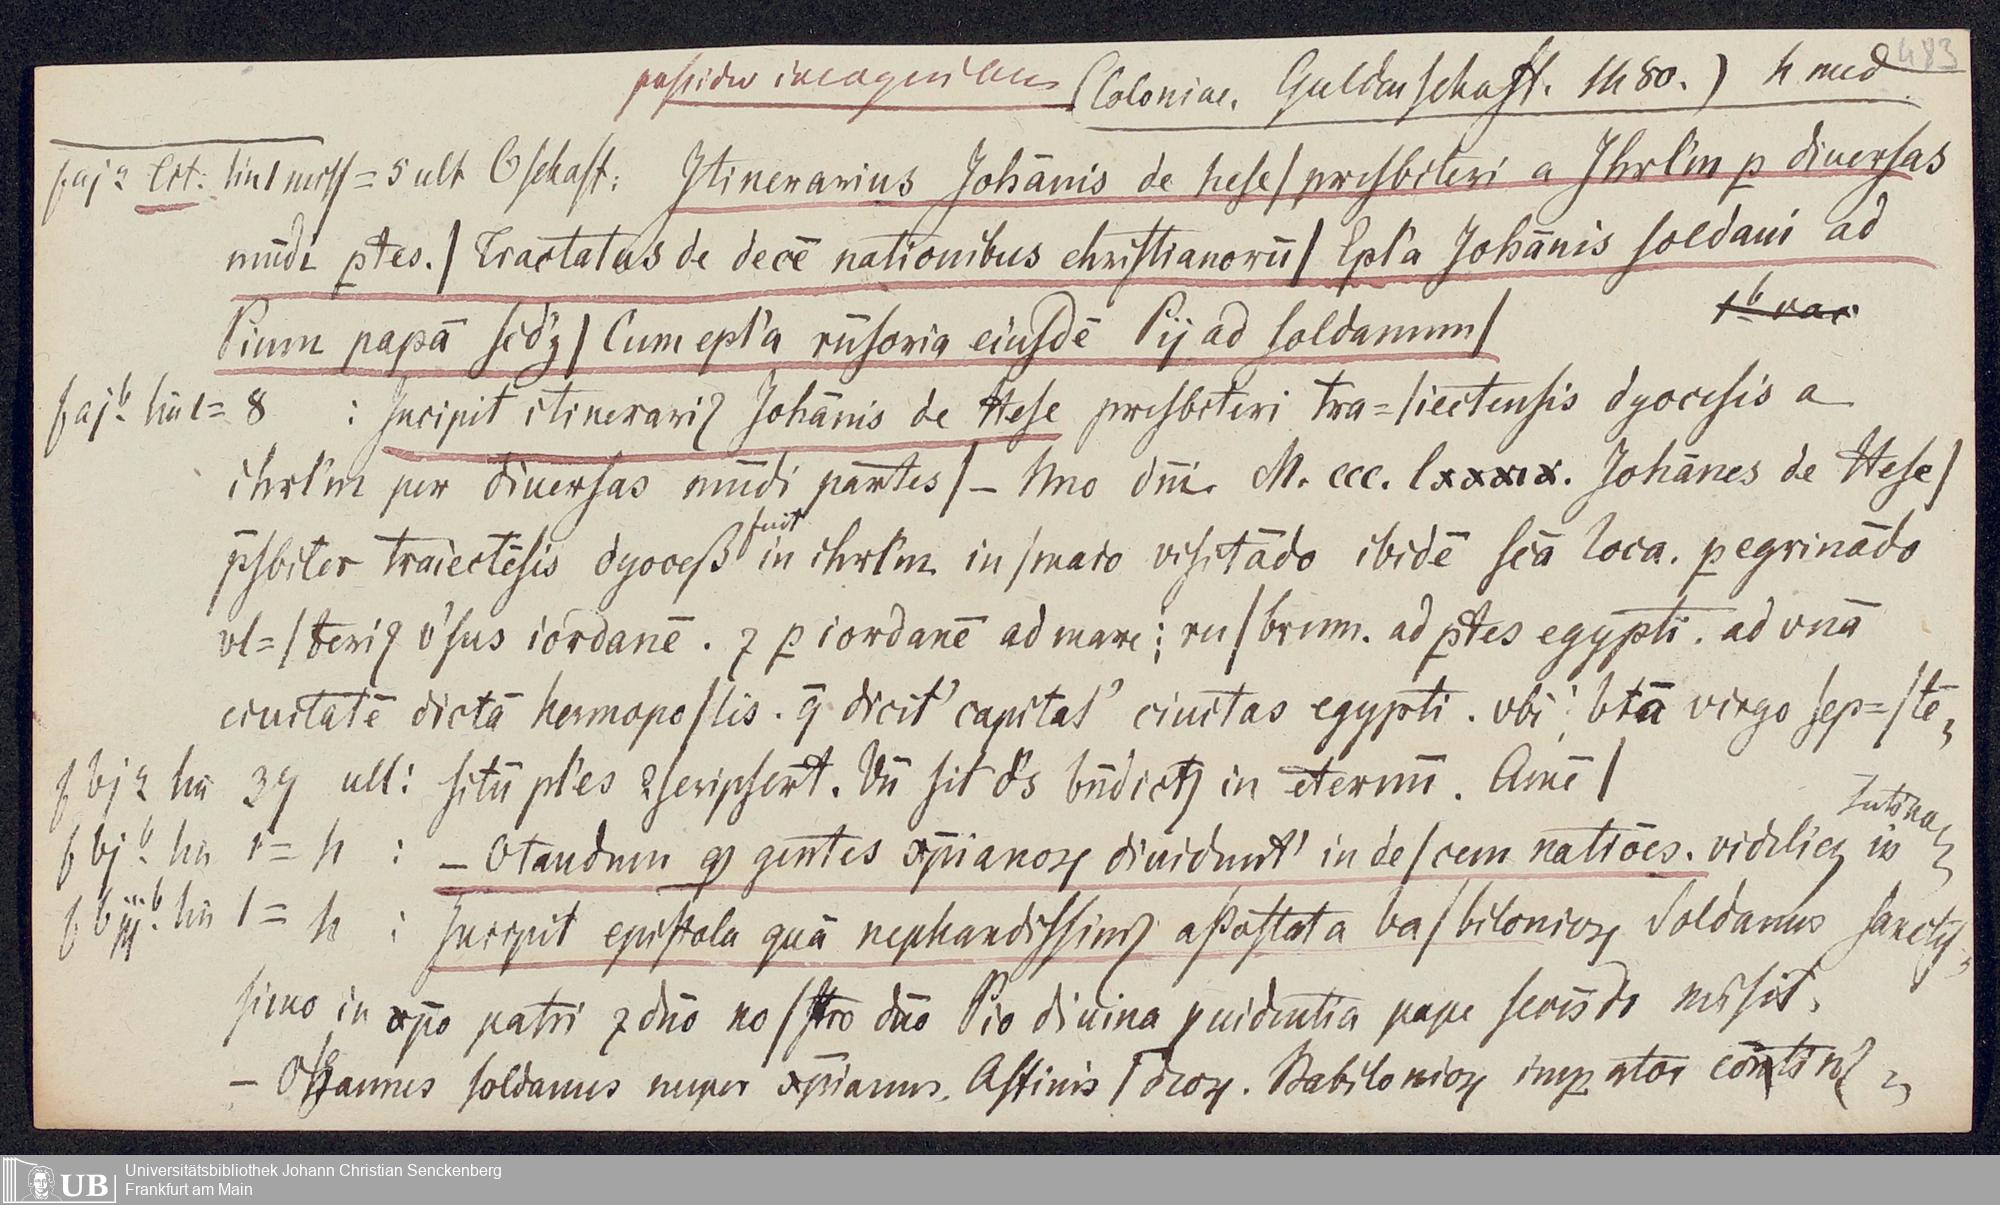 (Coloniae, Guldenschaff. 1480.) 4 med 483
Itinerarius Johānis de hese / presbiteri a Jhrl'm p diuersas
mūdi ptes. / Tractatus de decē nationibus christianorū / Epl'a Johānis soldani ad
Pium papā scd'ȝ / Cum epl'a rn̄soria eiusdē Pij ad soldanum /
f aj b lin 1 = 8 : Incipit itinerari9 Johānis de Hese presbiteri tra= / iectensis dyocesis a
ihrl'm per diuersas mūdi partes / – Anno dn̄i. M. ccc. lxxxix. Johānes de Hese /
p̄sbiter traiectēsis dyoceß fuit in ihrl'm in / maio visitādo ibidē scā loca. pegrinādo
vl= / teri9 v'sus iordanē. ⁊ p iordanē ad mare ru / brum. ad ptes egypti. ad vnā
ciuitatē dictā hermopo / lis. q̄ dicit' capital' ciuitas egypti. vbi btā virgo sep= / tē
f bj a lin 39 ult: sitū pl'es ꝯscripsert. Vn̄ sit d's bn̄dict9 in eternū. Amē /
f bj b lin 1 = 4 : – Otandum qp gentes xp̄ianoꝝ diuidunt' in de / cem natiōes. videlicȝ in
f biij b lin 1 = 4 : Incipit epistola quā nephandissim9 apostata ba / bilonioꝝ Soldanus sanctis
simo in xp̄o patri ⁊ dn̄o no / stro dn̄o Pio diuina puidentia pape scd'o misit.
– Ohannes soldanus nuper xp̄ianus. Affinis / deoꝝ. Babilonioꝝ impator
Universitätsbibliothek Johann Christian Senckenberg
Frankfurt am Main
UB